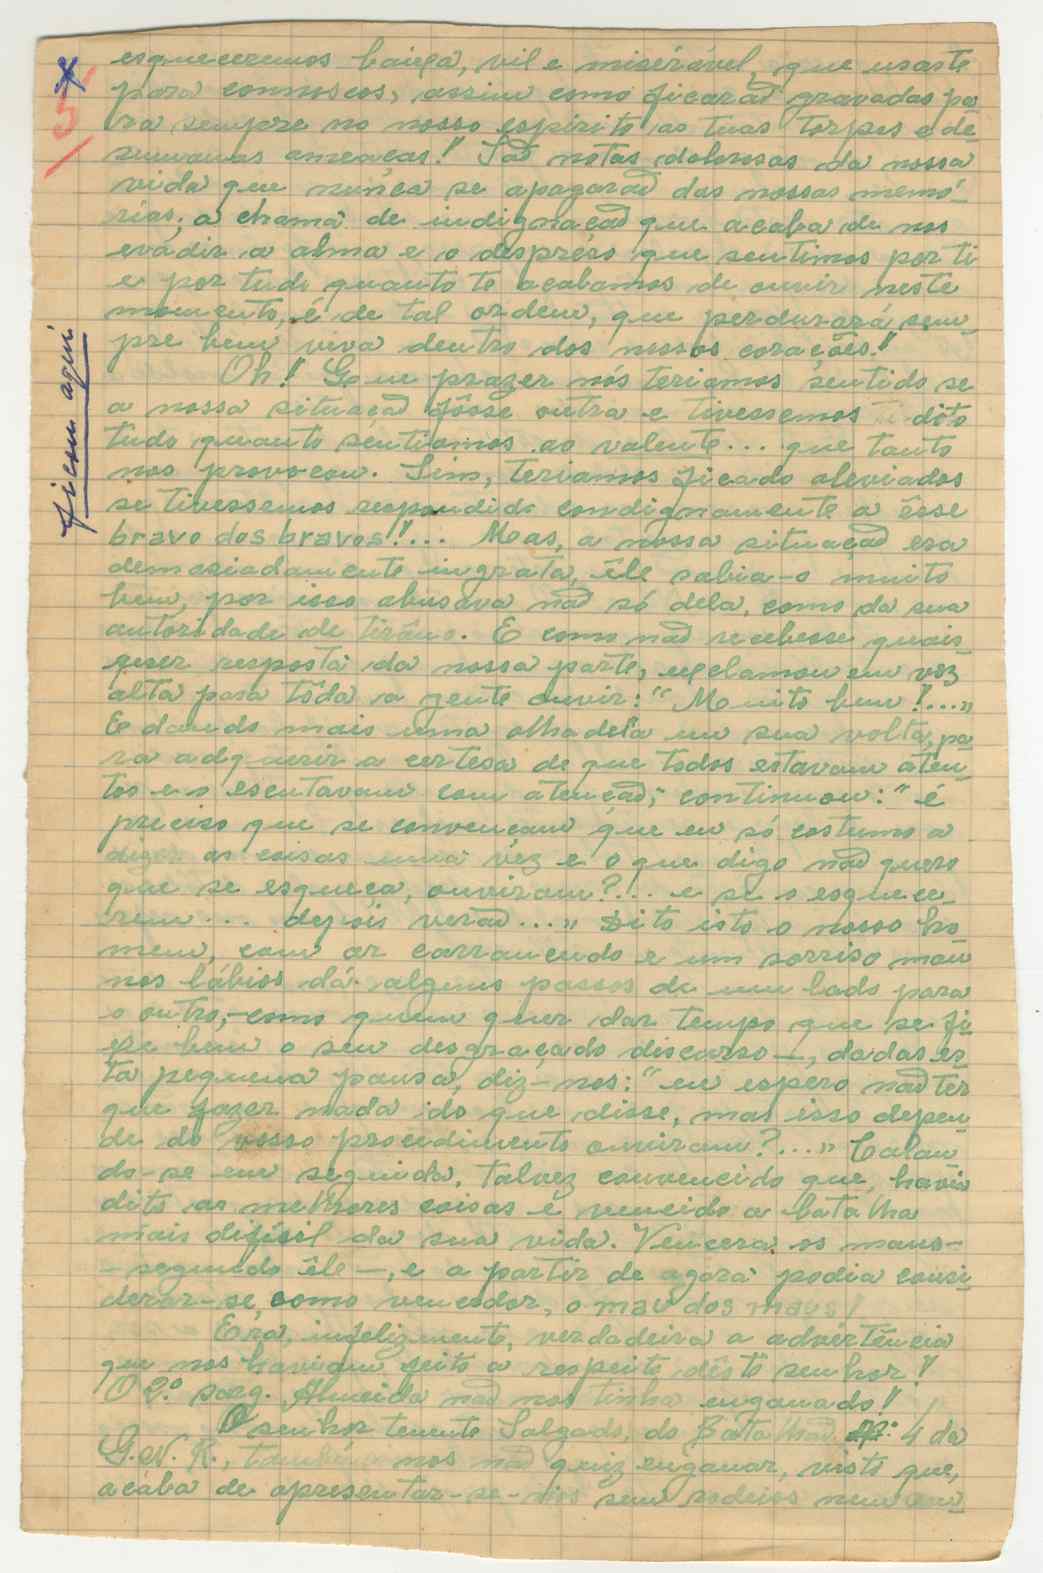 esqueceremos baixa, vil e miserável, que usaste
para connoscos, assim como ficarão gravadas pa-
ra sempre no nosso espírito as tuas torpes e de-
sumanas ameaças! São notas dolorosas da nossa
vida que nunca se apagarão das nossas memó-
rias; a chama de indignação que acaba de nos
evadir a alma e o despréso que sentimos por ti
e por tudo quanto te acabamos de ouvir neste
momento, é de tal ordem, que perdurará sem-
pre bem viva dentro dos nossos corações!
Oh! Que prazer nós teriamos sentido se
a nossa situação fôsse outra e tivessemos dito
tudo quanto sentiamos ao valente... que tanto
nos provocou. Sim, teriamos ficado aleviados
se tivessemos respondido condignamente a êsse
bravo dos bravos!... Mas, a nossa situação era
demasiadamente ingrata, êle sabia-o muito
bem, por isso abusava não só dela, como da sua
autoridade de tirâno. E como não recebesse quais-
queer resposta da nossa parte, exclamou em voz
alta para tôda a gente ouvir: "Muito bem!..."
E dando mais uma olhadela em sua volta, pa-
ra adquirir a certesa de que todos estavam aten-
tos e o escutavam com atenção; continuou: "é
preciso que se convençam que eu só costumo a
dizer as coisas uma vêz e o que digo não quero
que se esqueça, ouviram?... e se o esquece-
rem... depois verão..." Dito isto o nosso ho-
mem, com ar carrancudo e um sorriso mau
nos lábios dá alguns passos de um lado para
o outro,-como quem quer dar tempo que se fi-
xe bem o seu desgraçado discurso-, dadas es-
ta pequena pausa, diz-nos: "eu espero não ter
que fazer nada do que disse, mas isso depen-
de do vosso procedimento ouviram?..." Calan-
do-se em seguida, talvez convencido que, havia
dito as melhores coisas e vencido a batalha
mais difísil da sua vida. Vencera os maus-
-segundo êle-, e a partir de agora podia consi-
derar-se, como vencedor, o mau dos maus!
Era, infelizmente, verdadeira a advertência
que nos haviam feito a respeito dêste senhor!
O 2º sarg. Almeida não nos tinha enganado!
O senhor tenente Salgado, do Batalhão nº: 4 da
G.N.R., também nos não quiz enganar, visto que,
acaba de apresentar-se-nos sem rodeios nem
ficam aqui
5